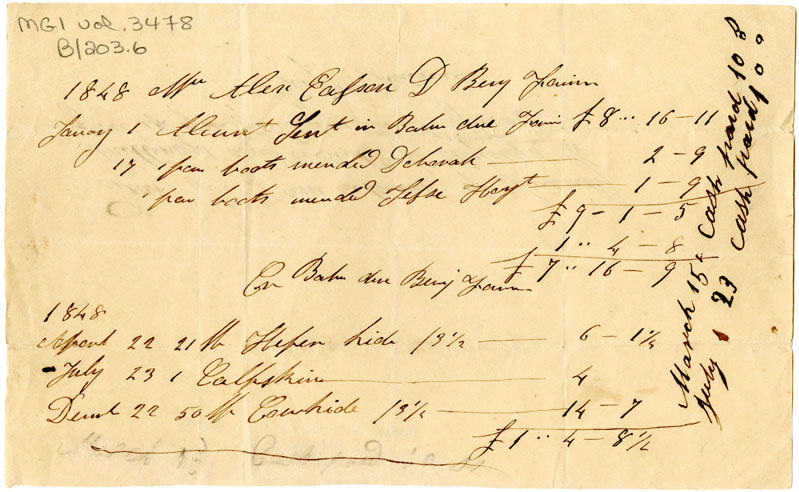 MG1 vol. 3478
B/203.6
1848 Mr Alex Eafson D Benj Fawn
Janay 1 Acount Sent in Baln due Fawn £8 " 16 - 11
17 1 pair boots mended Deborah 2 - 9
1 pair boots mended Jefse Hoyt 1 - 9
£ 9 - 1 - 5
1 " 4 - 8
£ 7 " 16 - 9
Baln due Benj Fawn
1848
Aprail 22 21 lb hide /3½ 6 - 1½
July 23 1 Calfskin 4
Decmb 22 50 lb Cowhide /3½ 14 - 7
£ 1 " 4 - 8½
March 15 Cash paid 10
July 23 Cash paid 10